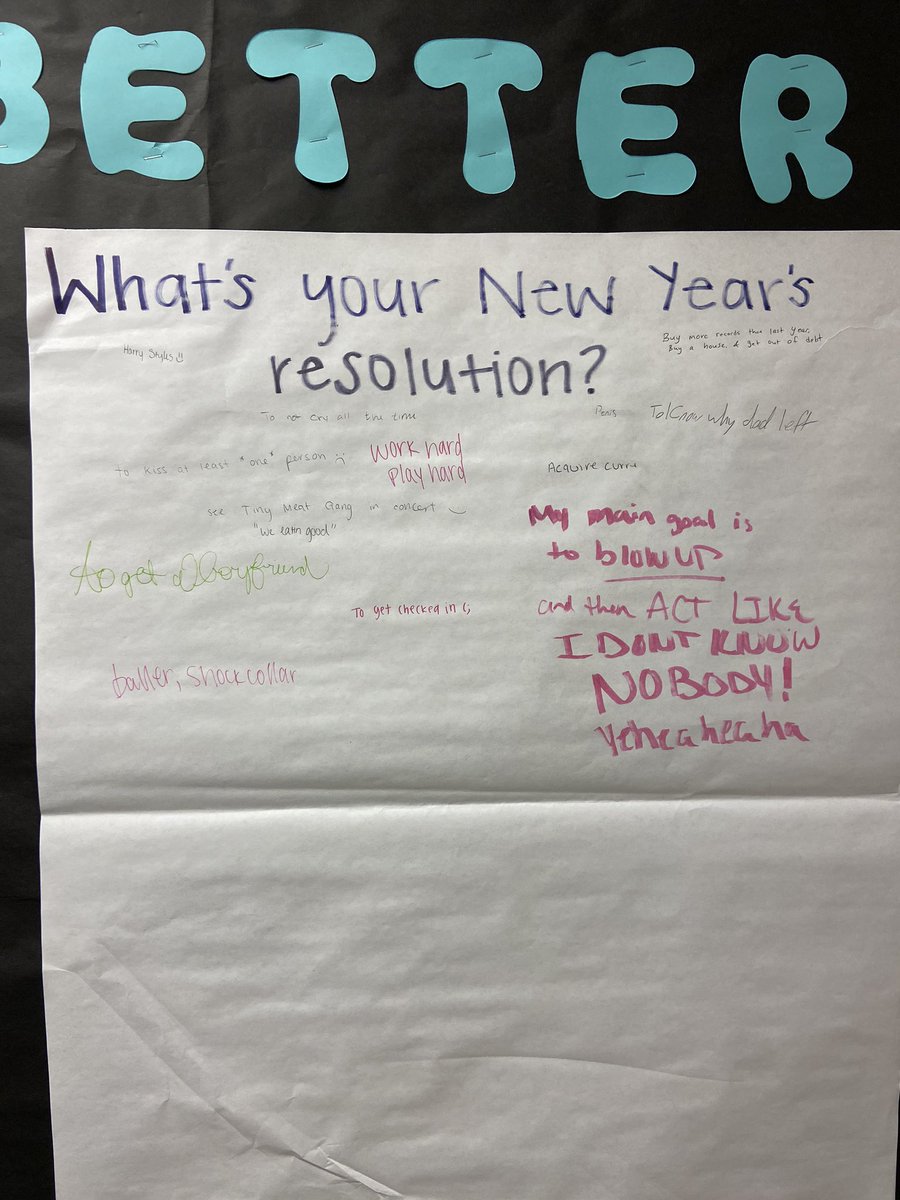 BETTER
What's your New Year's
resolution?
Harry Styles
Buy more records than last year,
Buy a house, & get out of debt
To not cry all the time
Penis
To Know why dad left
to kiss at least *one* person :(
work hard
play hard
Acquire curry
see Tiny Meat Gang in concert
"we eatin good"
to get a boyfriend
My main goal is
to blow up
and then ACT LIKE
I DONT KNOW
NOBODY!
Yeheaheaha
To get checked in (;
baller, shock collar